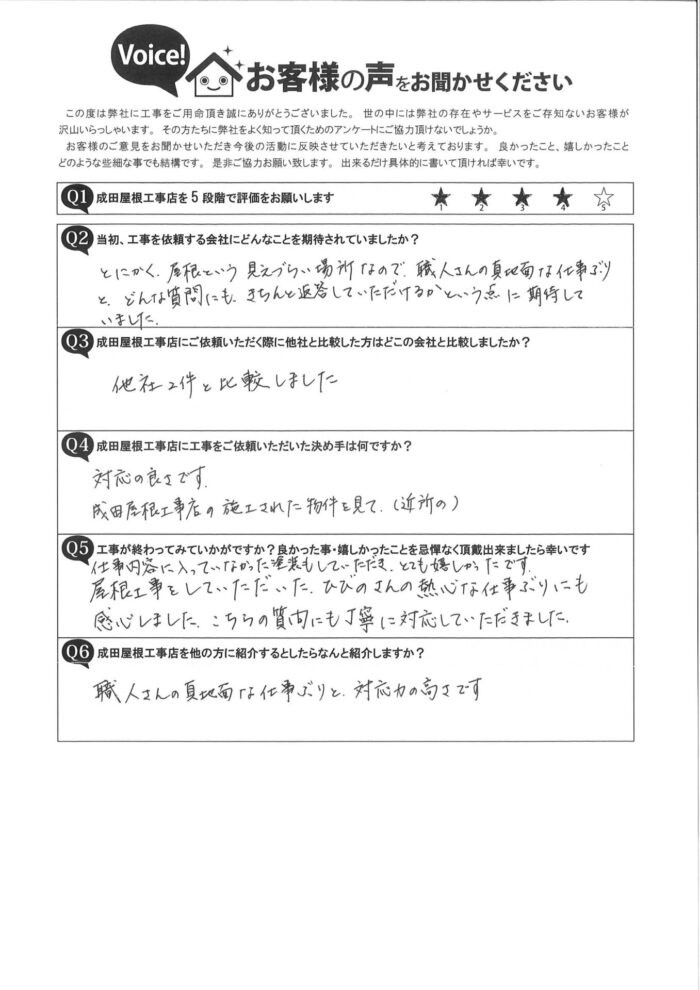 Voice!
お客様の声をお聞かせください
この度は弊社に工事をご用命頂き誠にありがとうございました。 世の中には弊社の存在やサービスをご存知ないお客様が
沢山いらっしゃいます。 その方たちに弊社をよく知って頂くためのアンケートにご協力頂けないでしょうか。
お客様のご意見をお聞かせいただき今後の活動に反映させていただきたいと考えております。 良かったこと、嬉しかったこと
どのような些細な事でも結構です。 是非ご協力お願い致します。 出来るだけ具体的に書いて頂ければ幸いです。
Q1 成田屋根工事店を5段階で評価をお願いします
1 2 3 4 5
Q2 当初、工事を依頼する会社にどんなことを期待されていましたか？
とにかく、屋根という見えづらい場所なので、職人さんの真地面な仕事ぶり
と、どんな質問にも、きちんと返答していただけるかという点に期待して
いました。
Q3 成田屋根工事店にご依頼いただく際に他社と比較した方はどこの会社と比較しましたか？
他社2件と比較しました
Q4 成田屋根工事店に工事をご依頼いただいた決め手は何ですか？
対応の良さです。
成田屋根工事店の施工された物件を見て。(近所の)
Q5 工事が終わってみていかがですか？良かった事・嬉しかったことを忌憚なく頂戴出来ましたら幸いです
仕事内容に入っていなかった塗装もしていただき、とても嬉しかったです。
屋根工事をしていただいた、ひびのさんの熱心な仕事ぶりにも
感心しました。こちらの質問にも丁寧に対応していただきました。
Q6 成田屋根工事店を他の方に紹介するとしたらなんと紹介しますか？
職人さんの真地面な仕事ぶりと、対応力の高さです